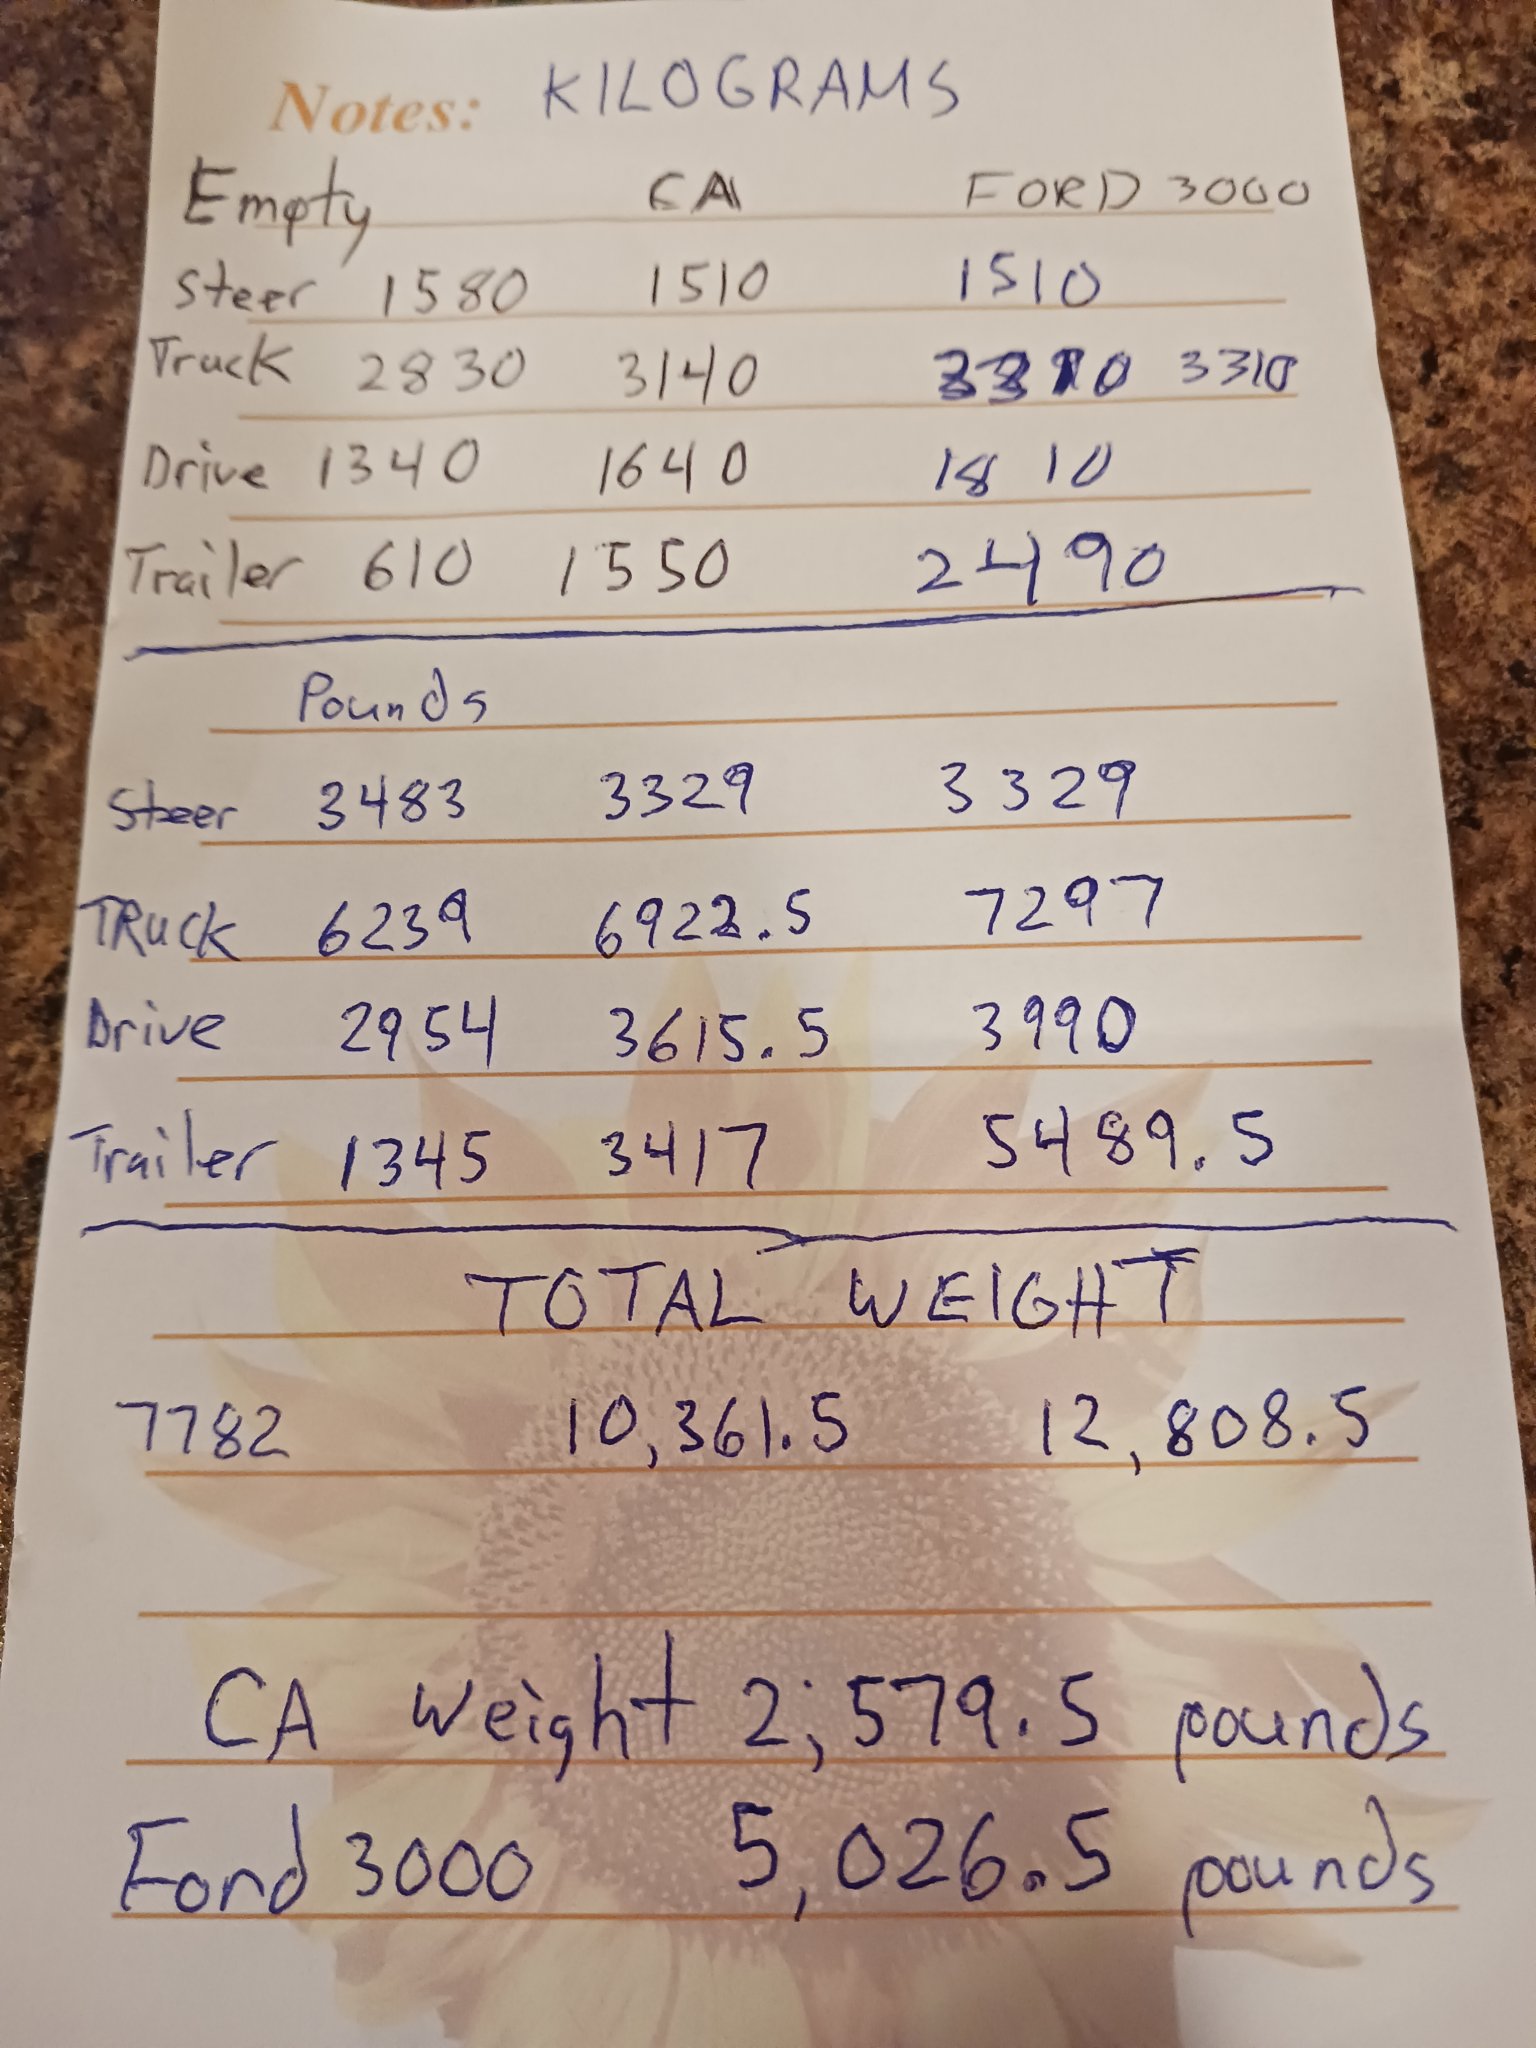 Notes: KILOGRAMS
Empty CA FORD 3000
Steer 1580 1510 1510
Truck 2830 3140 3310
Drive 1340 1640 1810
Trailer 610 1550 2490
Pounds
Steer 3483 3329 3329
TRuck 6239 6922.5 7297
Drive 2954 3615.5 3990
Trailer 1345 3417 5489.5
TOTAL WEIGHT
7782 10,361.5 12,808.5
CA Weight 2,579.5 pounds
Ford 3000 5,026.5 pounds